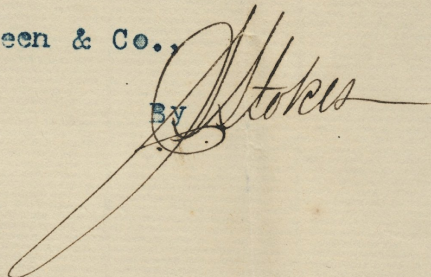 een & Co.,
By J Stokes